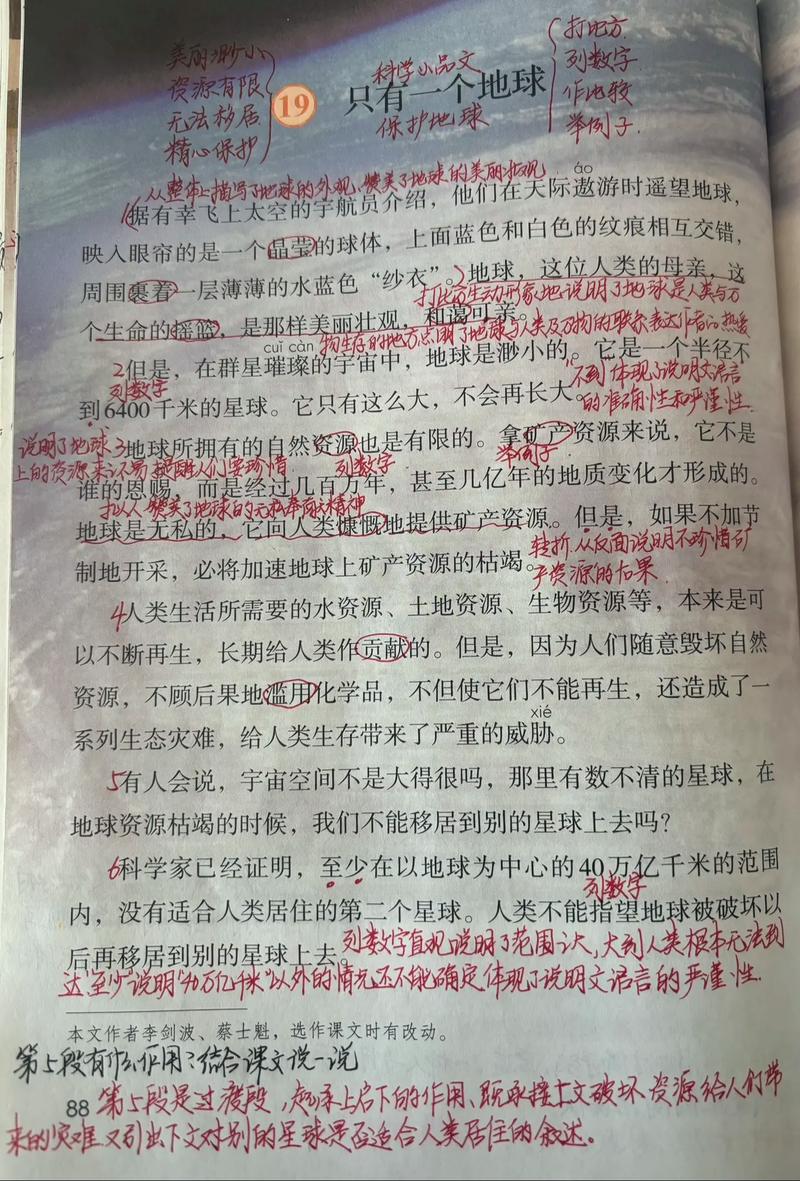 美丽渺小
资源有限
无法移居
精心保护
19 只有一个地球
科学小品文
保护地球
打比方
列数字
作比较
举例子
从整体上描写了地球的外观,赞美了地球的美丽壮观
áo
据有幸飞上太空的宇航员介绍，他们在天际遨游时遥望地球，
映入眼帘的是一个晶莹的球体，上面蓝色和白色的纹痕相互交错，
周围裹着一层薄薄的水蓝色“纱衣”。地球，这位人类的母亲，这
打比方生动形象地说明了地球是人类与万
个生命的摇篮，是那样美丽壮观，和蔼可亲。
物生存的地方,点明了地球与人类及万物的联系表达作者的热爱
cuǐ càn
2但是，在群星璀璨的宇宙中，地球是渺小的。它是一个半径不
列数字
“不到”体现了说明文语言
到6400千米的星球。它只有这么大，不会再长大。
的准确性和严谨性
说明了地球
3地球所拥有的自然资源也是有限的。拿矿产资源来说，它不是
上的资源来之不易,提醒人们要珍惜
列数字
举例子
谁的恩赐，而是经过几百万年，甚至几亿年的地质变化才形成的。
拟人 赞美了地球的无私奉献精神
地球是无私的，它向人类慷慨地提供矿产资源。但是，如果不加节
转折,从反面说明不珍惜矿
制地开采，必将加速地球上矿产资源的枯竭。
产资源的后果
4人类生活所需要的水资源、土地资源、生物资源等，本来是可
以不断再生，长期给人类作贡献的。但是，因为人们随意毁坏自然
资源，不顾后果地滥用化学品，不但使它们不能再生，还造成了一
xié
系列生态灾难，给人类生存带来了严重的威胁。
5有人会说，宇宙空间不是大得很吗，那里有数不清的星球，在
地球资源枯竭的时候，我们不能移居到别的星球上去吗？
6科学家已经证明，至少在以地球为中心的40万亿千米的范围
列数字
内，没有适合人类居住的第二个星球。人类不能指望地球被破坏以
后再移居到别的星球上去。
列数字直观说明了范围之大,大到人类根本无法到
达“至少”说明“40万亿千米”以外的情况还不能确定,体现了说明文语言的严谨性
本文作者李剑波、蔡士魁，选作课文时有改动。
第5段有什么作用?结合课文说一说
88
第5段是过渡段,起承上启下的作用、既承接上文破坏资源给人们带
来的灾难又引出下文对别的星球是否适合人类居住的叙述。